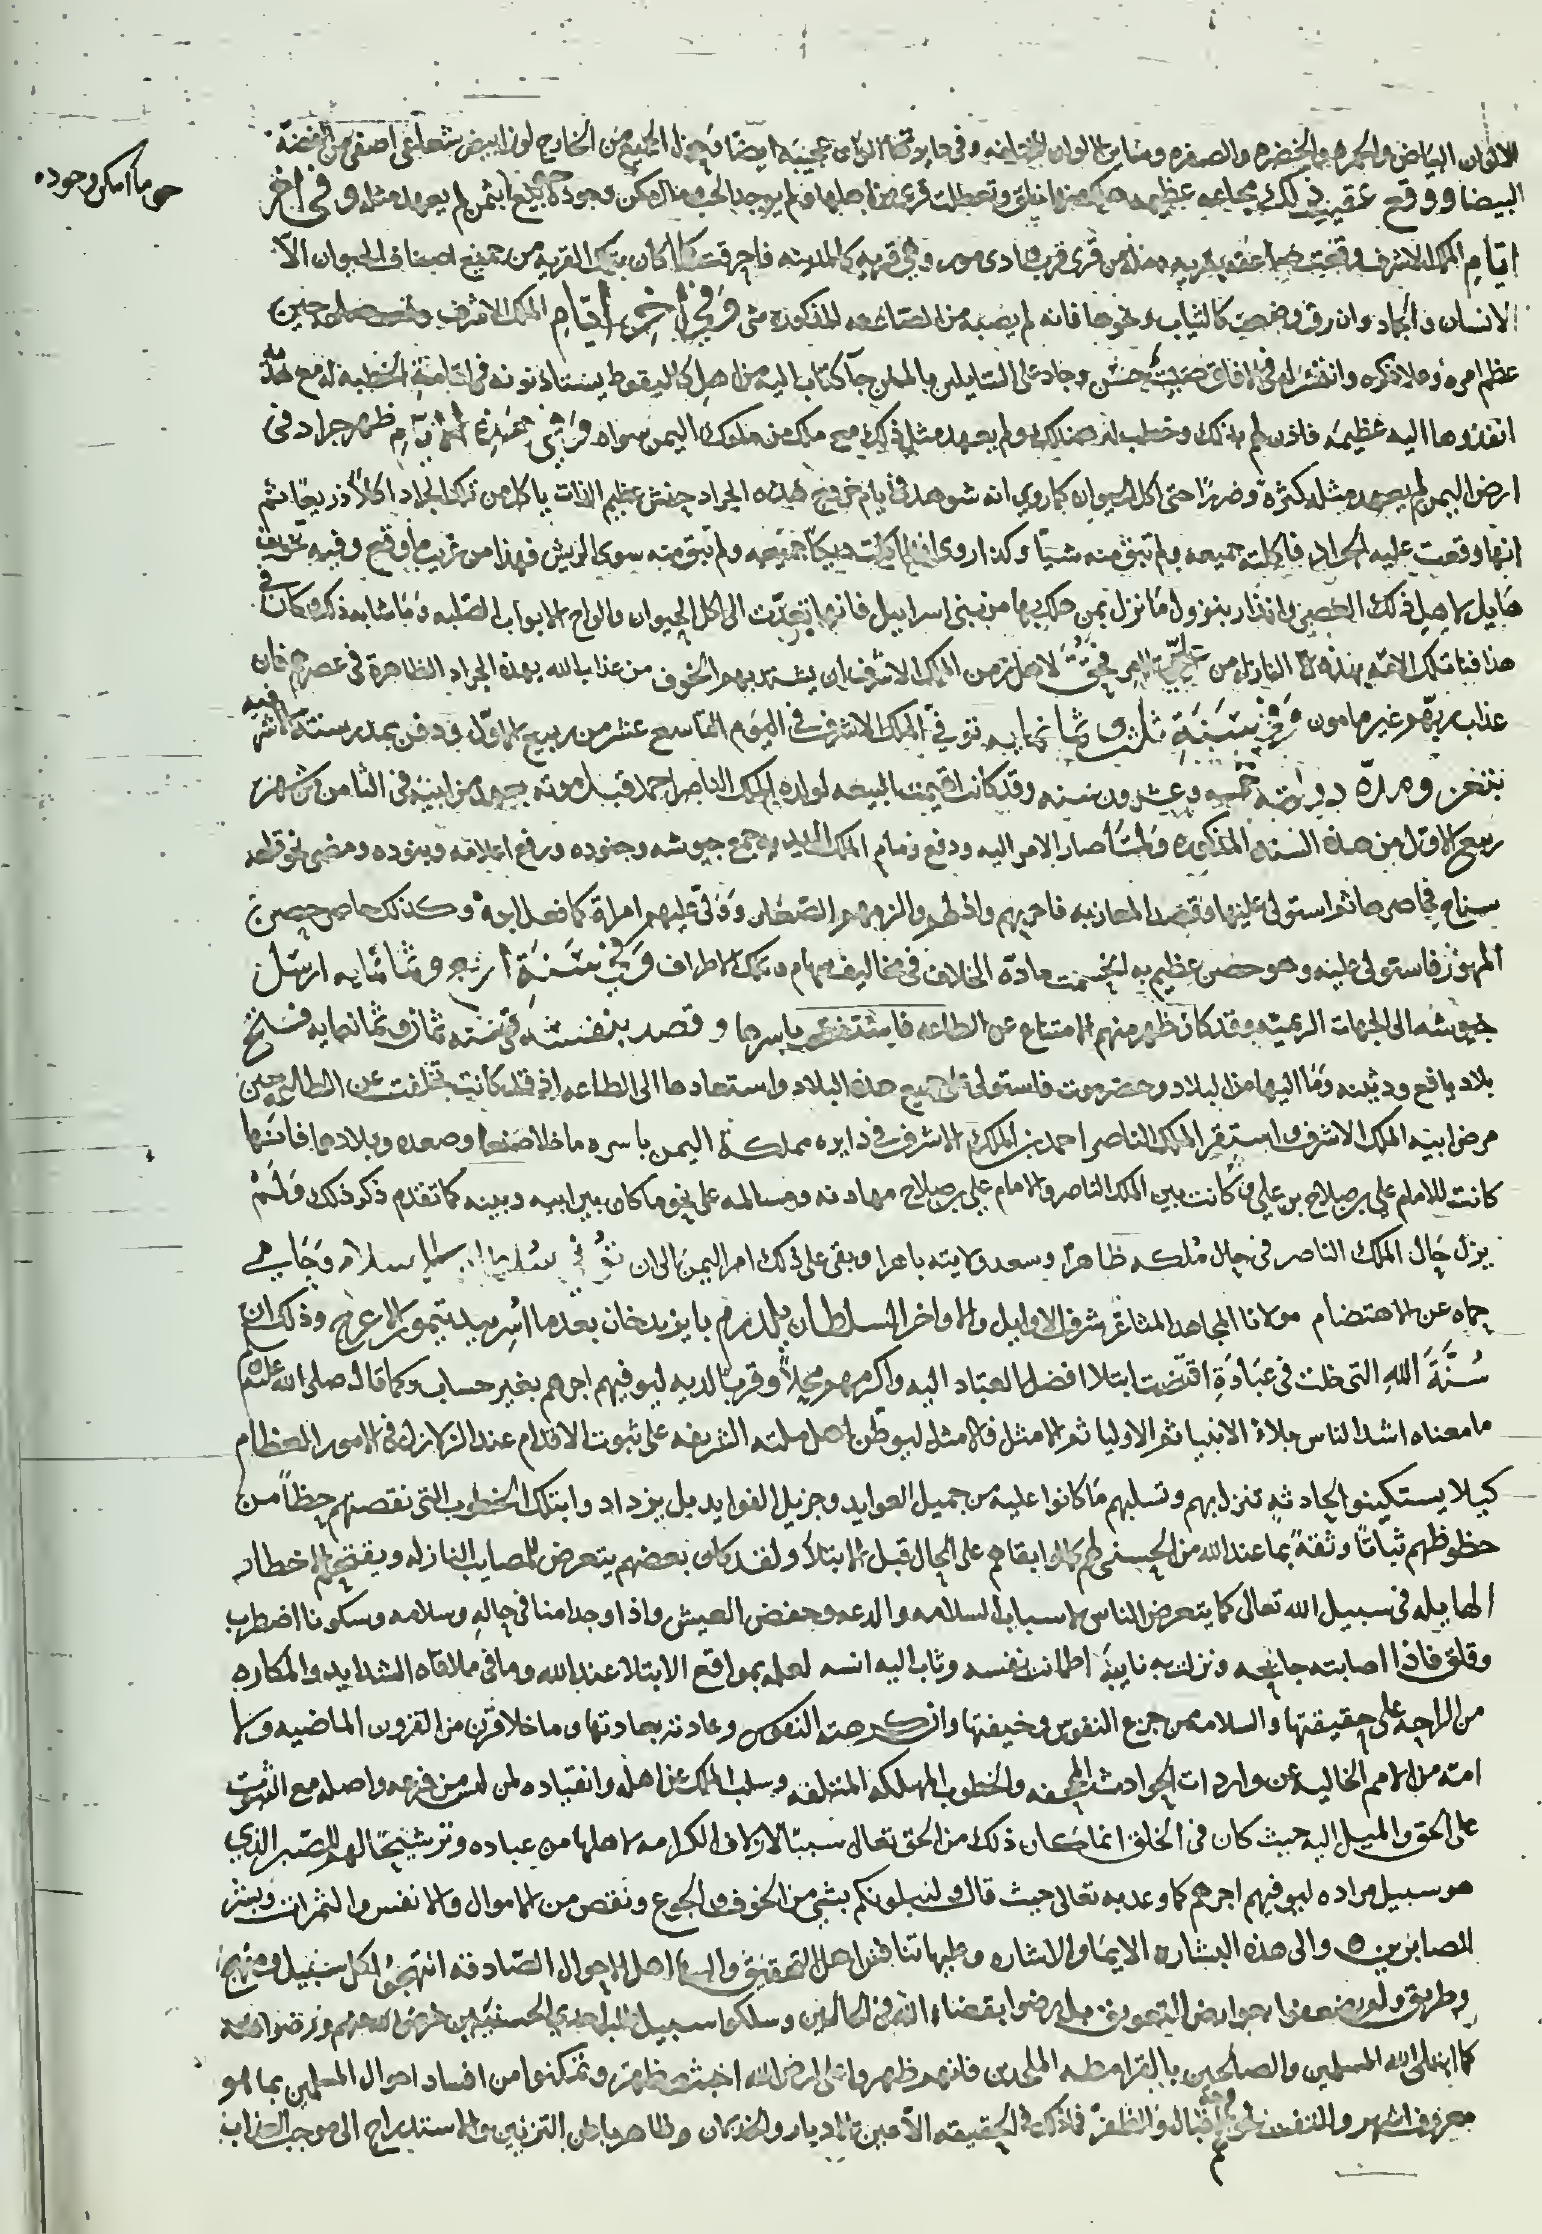 الالوان البياض والحمره والخضره والصفره وساير الالوان المختلفه وفى ما بينها الوان عجيبه ايضا الخارج لونا ابيض اصفى من الفضة
حتى ما امكن وجوده
البيضا ووقع عقيب ذلك مجاعه عظيمه هلك منها خلق وتعطلت قرى من اهلها ولم يوجد الحب وما امكن وجوده بيع بثمن لم يعهد مثله وفى اخر
ايام الملك الاشرف وقعت صاعقه بقريه من قرى وادى مور وهى قريه كالمدينه فاحرقت كلما كان بتلك القريه من جميع اصناف الحيوان الا
الانسان والجماد وان رق وضعف كالثياب ونحوها فانه لم يصبه من الصاعقه المذكورة شى وفى اخر ايام الملك الاشرف حين
عظم امره وعلا ذكره وانتشر له فى الافاق صيت حسن وجاد على السايلين بالمنن جا كتاب اليه من اهل كاليقوط يستاذنونه فى اقامة الخطبه له مع هديه
انفذوها اليه عظيمه فاذن لهم بذلك وخطب له هنالك ولم يعهد مثل ذلك مع ملك من ملوك اليمن سواه وفى هذه الايام ظهر جراد فى
ارض اليمن لم يعهد مثله كثرة وضررا حتى اكل الحيوان كما روي انه شوهد فى ايام خروج هذه الجراد حنش عظيم الذات ياكل من تلك الجراد اكلا ذريعا ثم
انها وقعت عليه الجراد فاكلته جميعه ولم تبق منه شيا وكذا روى انها اكلت ديكا جميعه ولم تبق منه سوى الريش فهذا من غريب ما وقع وفيه تخويف
هايل لاهل ذلك العصر وانذار بنزول ما نزل بمن هلك بها من بنى اسرايل فانها تعدت الى اكل الحيوان والواح الابواب الصلبه وما شابه ذلك وكان فى
هذا فنا تلك الامه بهذه النازله من فحق لاهل زمن الملك الاشرف ان يشتد بهم الخوف من عذاب الله بهذه الجراد الظاهرة فى عصرهم فان
عذاب ربهم غير مامون وفى سنة ثلث وثمانمايه توفي الملك الاشرف فى اليوم التاسع عشر من ربيع الاول ودفن بمدرسته الاشرفيه
بتعز ومدة دولته خمس وعشرون سنه وقد كانت اقيمت البيعه لولده الملك الناصر احمد قبل موته بعهد من ابيه فى الثامن من شهر
ربيع الاول من هذه السنه المذكوره ولما صار الامر اليه ودفع زمام الملك الى يديه جمع جيوشه وجنوده ورفع اعلامه وبنوده ومضى نحو قلعه
سناح فحاصرها ثم استولى عليها وقصد المعازبه فاخربهم واذلهم والزمهم الصغار وولى عليهم امراة كما فعل ابوه وكذلك حاصر حصن
المهور فاستولى عليه وهو حصن عظيم به انحسمت مادة الخلاف فى مخاليف سهام وتلك الاطراف وفى سنة اربع وثمانمايه ارسل
جيوشه الى الجهات الرعيه وقد كان ظهر منهم الامتناع عن الطاعه فاستفتحها باسرها وقصد بنفسه فى سنة ثمان وثمانمايه فتح
بلاد يافع ودثينه وما اليها من البلاد وحضرموت فاستولى على جميع هذه البلاد واستعادها الى الطاعه اذ قد كانت تخلفت عن الطاعه حين
مرض ابيه الملك الاشرف واستقر الملك الناصر احمد بن الملك الاشرف فى دايره مملكة اليمن باسره ما خلا صنعا وصعده وبلادها فانها
كانت للامام علي بن صلاح بن علي وكانت بين الملك الناصر والامام علي بن صلاح مهادنه ومسالمه على نحو ما كان بين ابيه وبينه كما تقدم ذكر ذلك ولم
يزل حال الملك الناصر فى حال ملكه ظاهرا وسعد ولايته باهرا وبقى على ذلك امر اليمن الى ان توفي سلطان الاسلام وحامي
حماه عن الاهتضام مولانا المجاهد المثاغر شرف الاوايل والاواخر السلطان يلدرم بايزيد خان بعدما اسر بيد تيمور الاعرج وذلك ان
سنة الله التى خلت فى عباده اقتضت ابتلا افضل العباد اليه واكرمهم محلا وقربا لديه ليوفيهم اجرهم بغير حساب وكما قال صلى الله عليه وسلم
ما معناه اشد الناس بلاء الانبيا ثم الاوليا ثم الامثل فالامثل ليوطن اهل ملته الشريفه على ثبوت الاقدام عند الزلازل فى الامور العظام
كيلا يستكينوا لحادثه تنزل بهم وتسلبهم ما كانوا عليه من جميل العوايد وجزيل الفوايد بل يزداد وا بتلك الخطوب التى نقصتهم حظا من
حظوظهم ثباتا وثقة بما عند الله من الحسنى لهم كما لو ابقاهم على الحال قبل الابتلا ولقد كان بعضهم يتعرض للمصايب النازله ويقتحم الاخطار
الهايله فى سبيل الله تعالى كما يتعرض الناس لاسباب السلامه والدعه وخفض العيش واذا وجد امنا فى حاله وسلامه وسكونا اضطرب
وقلق فاذا اصابته جايحه ونزلت به نايبة اطمانت نفسه وثاب اليه انسه لعلمه بمواقع الابتلا عند الله وما فى ملاقاه الشدايد والمكاره
من الراحه على حقيقتها والسلامه من جزع النفوس وخيفتها وان كرهته النفوس وعادته بعادتها وما خلا قرن من القرون الماضيه ولا
امه من الامم الخاليه عن واردات الحوادث المجحفه والخطوب المهلكه المتلفه وسلب الملك عن اهله وانقياده لمن ليس من فرعه واصله مع الثبوت
على الحق والميل اليه حيث كان فى الخلق انما كان ذلك من الحق تعالى سببا لازلاف الكرامه لاهلها من عباده وترشيحا لهم للصبر الذي
هو سبيل مراده ليوفيهم اجرهم كما وعد به تعالى حيث قال ولنبلونكم بشي من الخوف والجوع ونقص من الاموال والانفس والثمرات وبشر
الصابرين والى هذه البشاره الايما والاشاره وعليها تنافس اهل التحقيق اهل الاحوال الصادقه انتهجوا لكل سبيل ومنهج
وطريق ولم يضعفوا بعوايض التعويق بل رضوا بقضاء الله فى الحالين وسلكوا سبيل طلب احدى الحسنيين فرضى الله عنهم ورضوا عنه
كما ابتلى الله المسلمين والصالحين بالقرامطه الملحدين فانهم ظهروا على ارض الله اخبث مظهر وتمكنوا من افساد احوال المسلمين بما هو
معروف اشهر والظفر فذلك فى الحقيقه الا عين الادبار والخذلان وظاهر باطن التزيين والاستدراج الى موجب العذاب